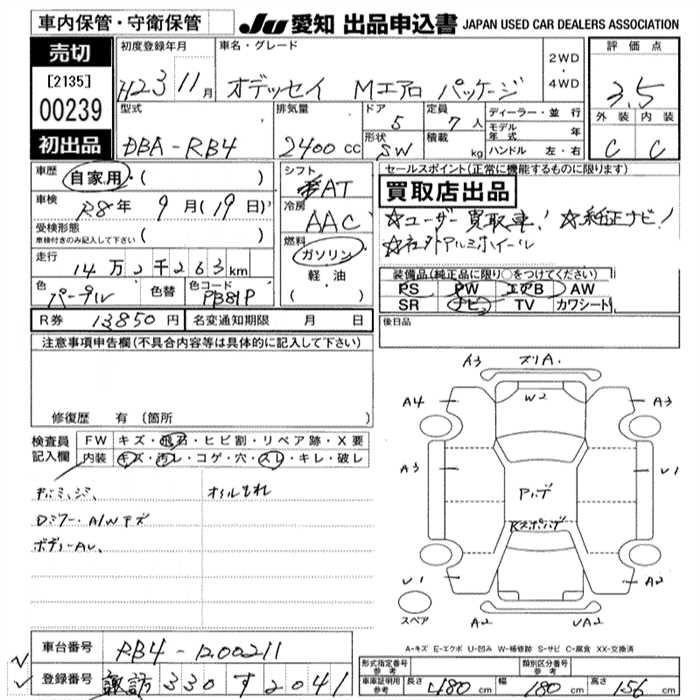 車内保管・守衛保管
JU 愛知 出品申込書 JAPAN USED CAR DEALERS ASSOCIATION
売切
[2135]
00239
初出品
初度登録年月 車名・グレード 2WD・4WD 評価点
H23 11月 オデッセイ Mエアロ パッケージ 3.5
型式 排気量 ドア 定員 ディーラー・並行 外装 内装
DBA-RB4 2400cc 5 7人 モデル年式 年 C C
形状 積載 ハンドル 左・右
SW kg
車歴 自家用・( )
シフト AT
セールスポイント(正常に機能するものに限ります)
買取店出品
☆ユーザー買取車! ☆純正ナビ!
☆社外アルミホイール
車検 R8年 9月(19日)
冷房 AAC
受検形態
車検付きのみ記入して下さい ( )
燃料 ガソリン・軽油・( )
走行 14万2千263km
装備品(純正品に限り○をつけてください)
PS PW エアB AW
SR ナビ TV カワシート
色 パープル 色替 色コード PB81P
R券 13850円 名変通知期限 月 日
後日品
注意事項申告欄(不具合内容等は具体的に記入して下さい)
修復歴 有(箇所
検査員記入欄 FW キズ・飛石・ヒビ割・リペア跡・X要
内装 キズ・汚レ・コゲ・穴・スレ・キレ・破レ
オイルもれ
Dミラー・A/Wキズ
A3 ズリA.
A4 W2 A3
A3 Pハゲ V1
Rスポハゲ
V1 A2
スペア A2 VA2
A-キズ E-エクボ U-凹み W-補修跡 S-サビ C-腐食 XX-交換済
車台番号 RB4-1200211
登録番号 諏訪 330 す 2041
形式指定番号参考 類別区分番号参考
車庫証明用参考 長さ 480cm 幅 180cm 高さ 156cm